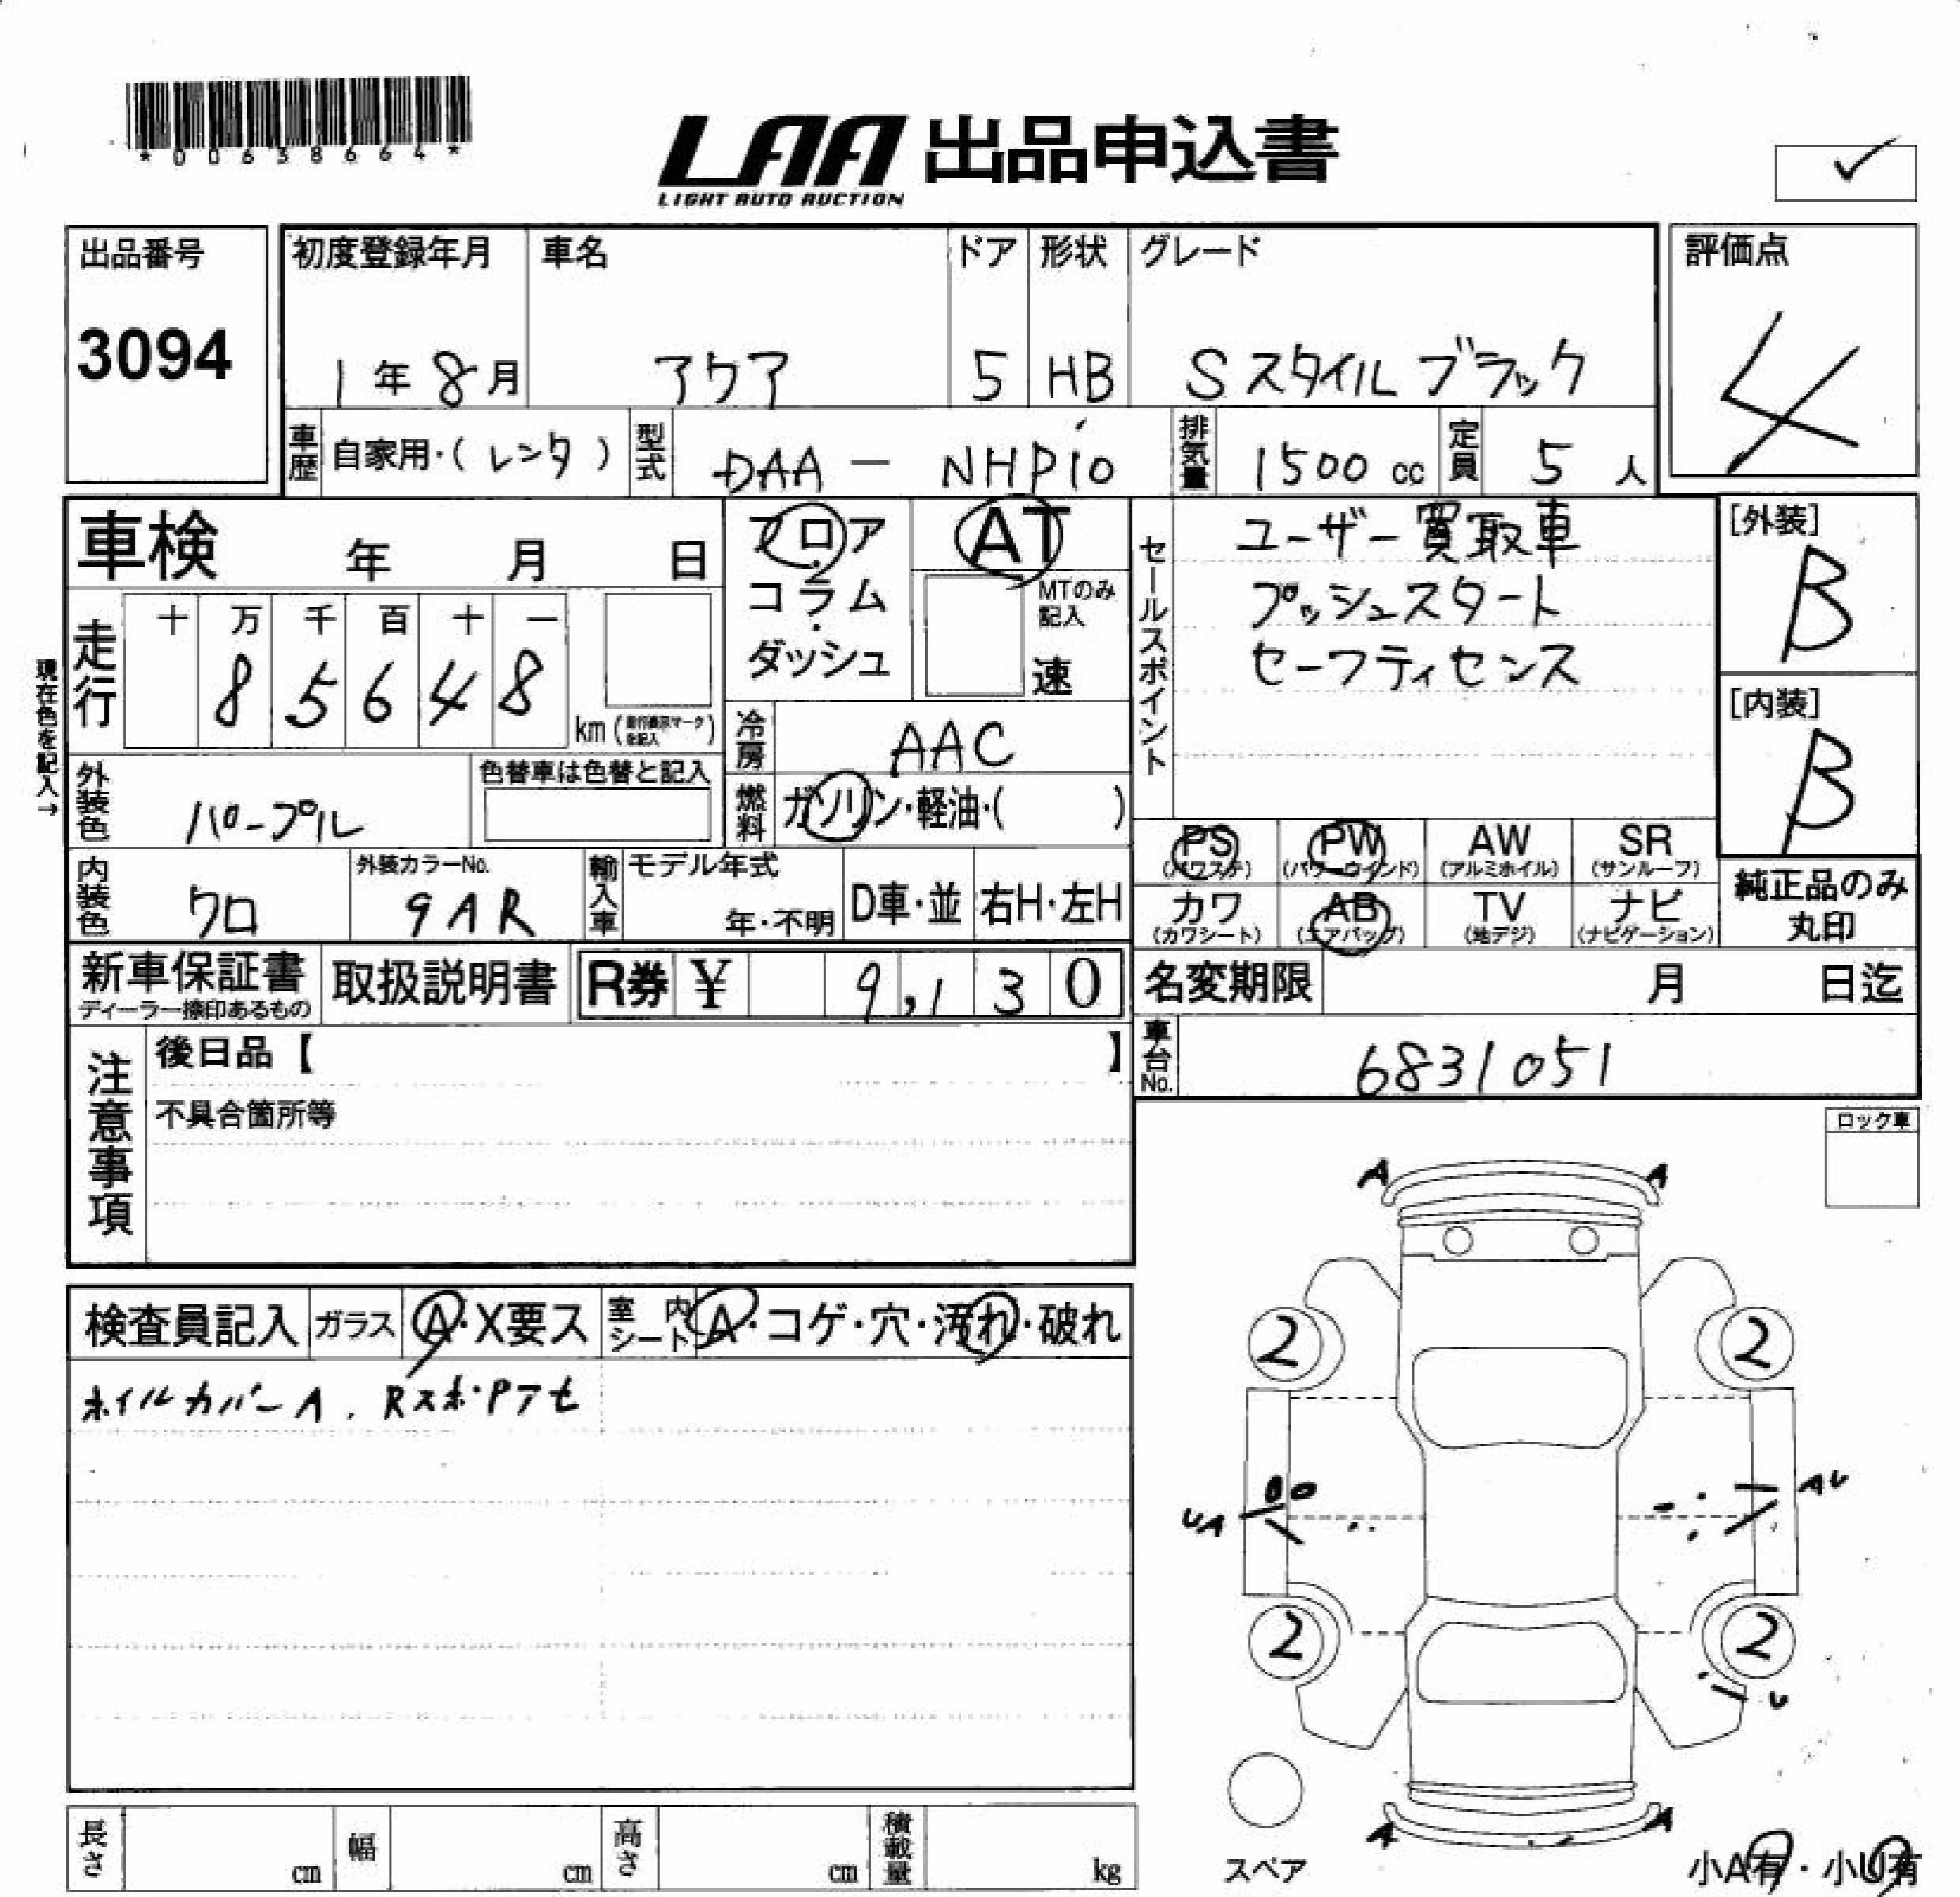 *00638664*
LAA 出品申込書
LIGHT AUTO AUCTION
出品番号
3094
初度登録年月
1年8月
車名
アクア
ドア
5
形状
HB
グレード
Sスタイルブラック
評価点
4
車歴
自家用・(レンタ)
型式
DAA - NHP10
排気量
1500 cc
定員
5 人
車検 年 月 日
フロア
コラム
ダッシュ
AT
MTのみ
記入
速
セールスポイント
ユーザー買取車
プッシュスタート
セーフティセンス
[外装]
B
[内装]
B
現在色を記入→
走行
十 万 千 百 十 一
8 5 6 4 8
km(走行表示マークを記入)
冷房
AAC
燃料
ガソリン・軽油・( )
外装色
パープル
色替車は色替と記入
内装色
クロ
外装カラーNo.
9AR
輸入車
モデル年式
年・不明
D車・並
右H・左H
PS
(パワステ)
PW
(パワーウインド)
AW
(アルミホイル)
SR
(サンルーフ)
カワ
(カワシート)
AB
(エアバッグ)
TV
(地デジ)
ナビ
(ナビゲーション)
純正品のみ
丸印
新車保証書
ディーラー捺印あるもの
取扱説明書
R券 ¥ 9,130
名変期限 月 日迄
車台No.
6831051
注意事項
後日品【 】
不具合箇所等
ロック車
検査員記入
ガラス
A・X要ス
室内シート
A・コゲ・穴・汚れ・破れ
ホイルカバーA. Rスポ・Pアセ
A A
2 2
UA
AU
2 2
U
A A
スペア
小A有・小U有
長さ cm
幅 cm
高さ cm
積載量 kg